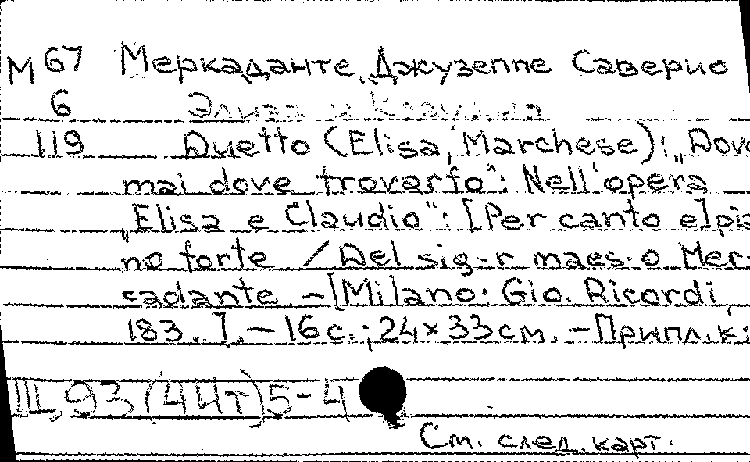 М 67 Меркаданте, Джузеппе Саверио
6 Элиза и Клаудио
119 Duetto (Elisa, Marchese): „Dove
mai dove trovarlo": Nell'opera
„Elisa e Claudio": [Per canto e] pia
no forte / Del sig-r maes-o Mer-
cadante - [Milano: Gio. Ricordi,
183. ]. - 16 с.; 24×33 см. - Припл. к:
Ш, 93 (4 Ит) 5-4
См. след. карт.